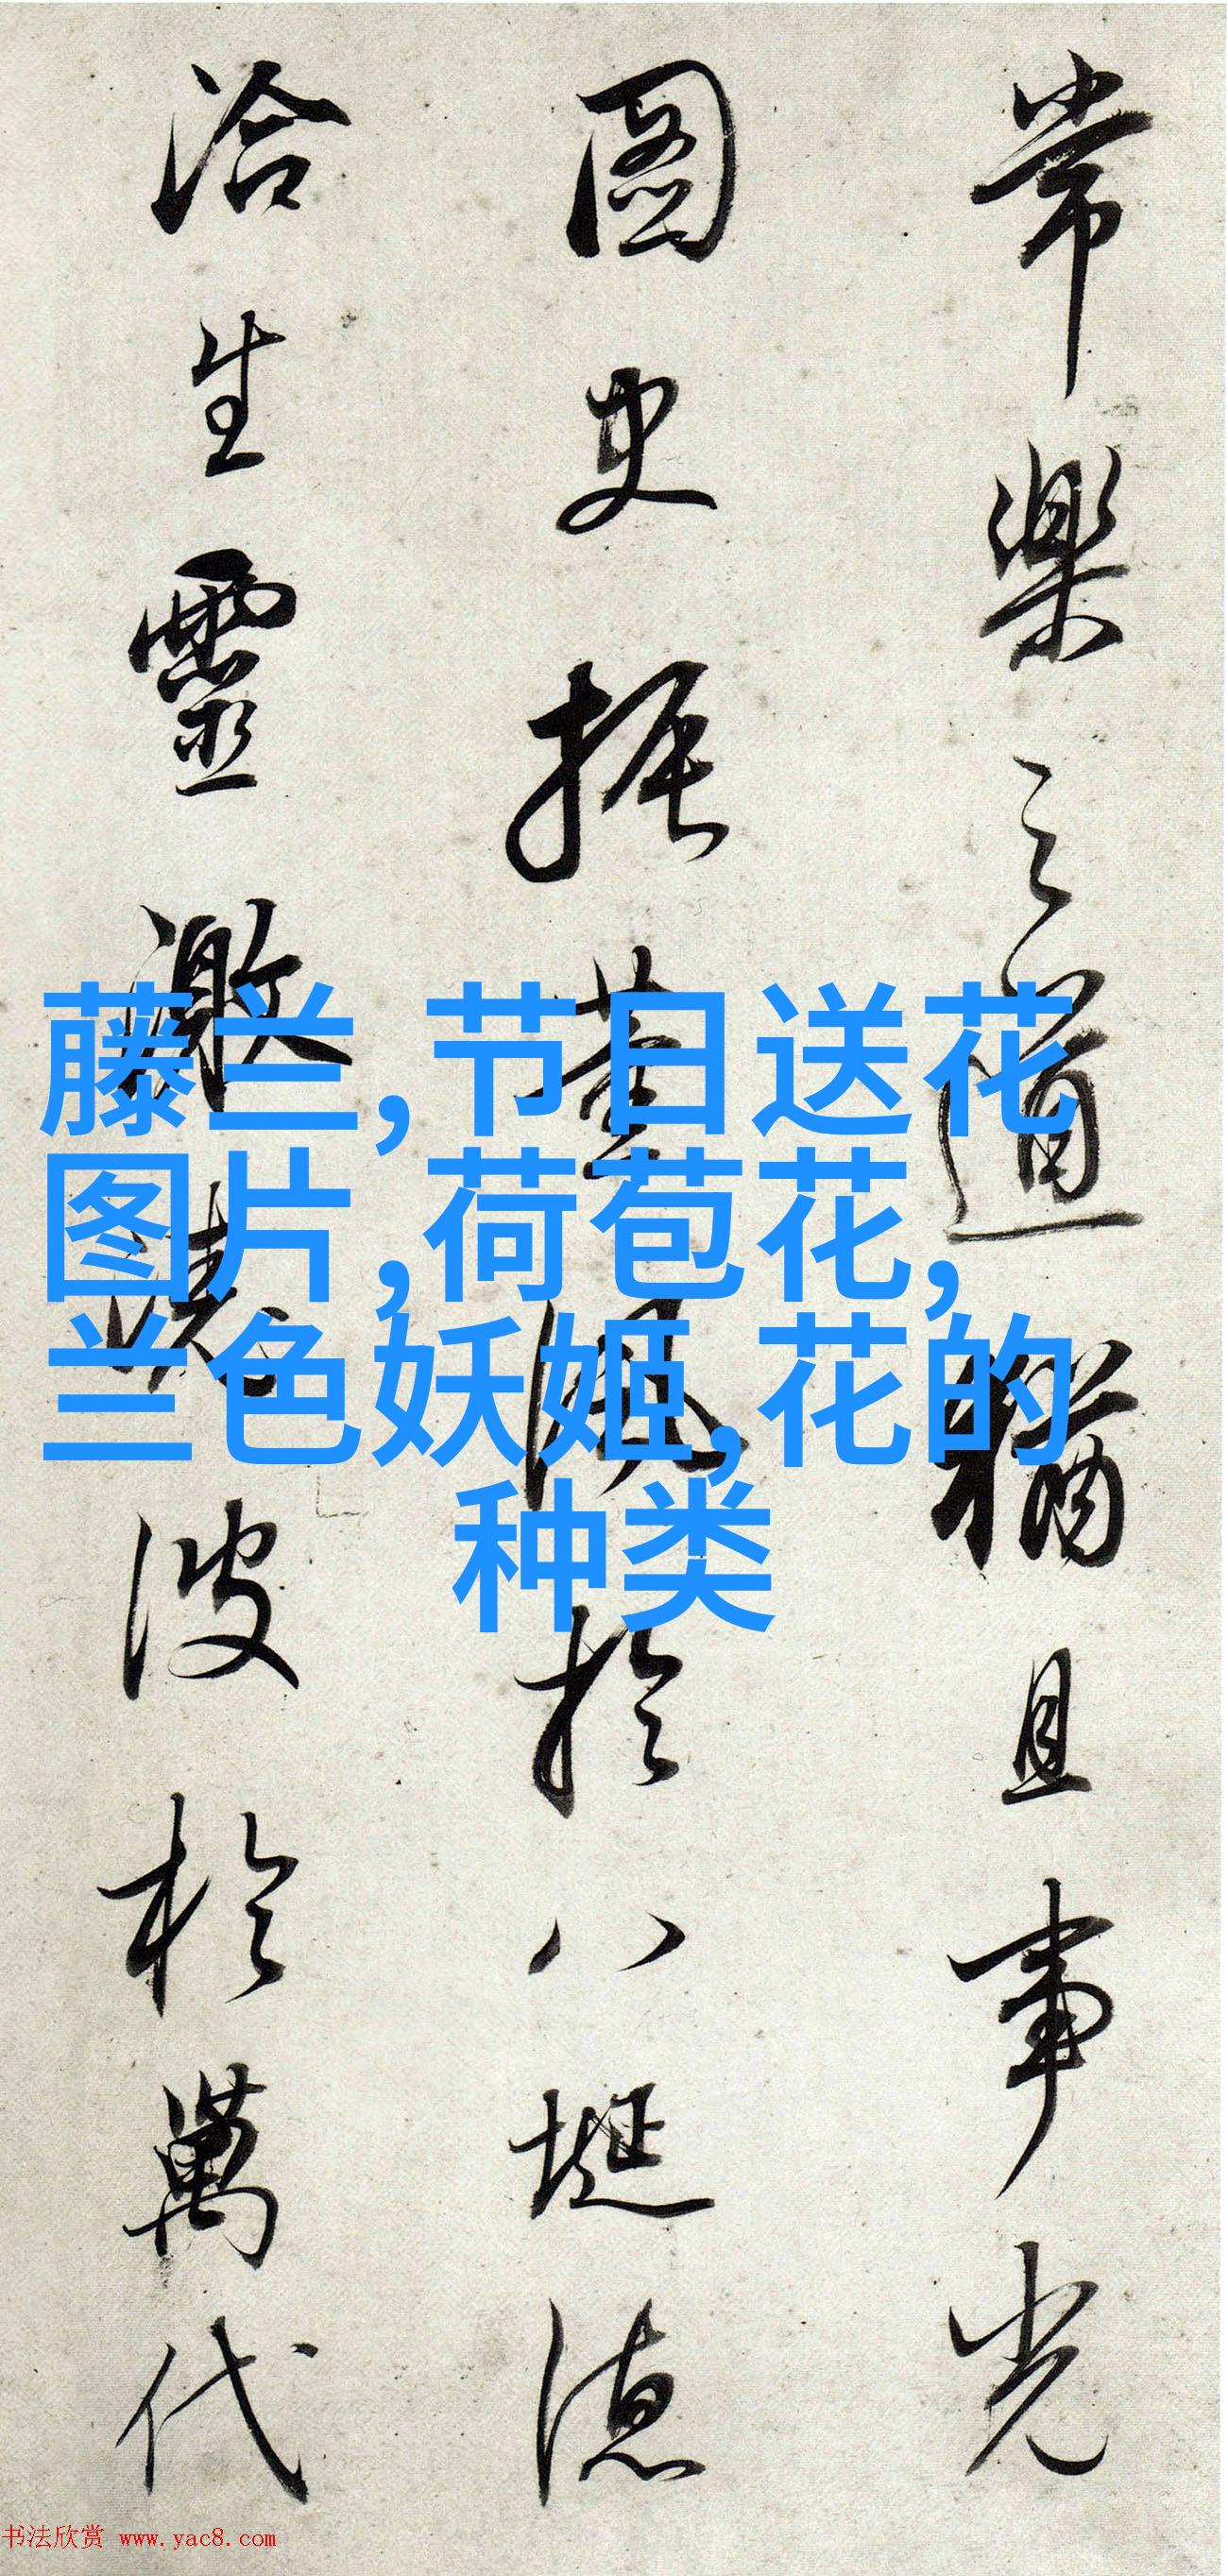 常樂之道猶且事光
圖史振薰風於八埏德
洽生靈激澆波於萬代
藤兰,节日送花
图片,荷苞花,
兰色妖姬,花的
种类
书法欣赏 www.yac8.com